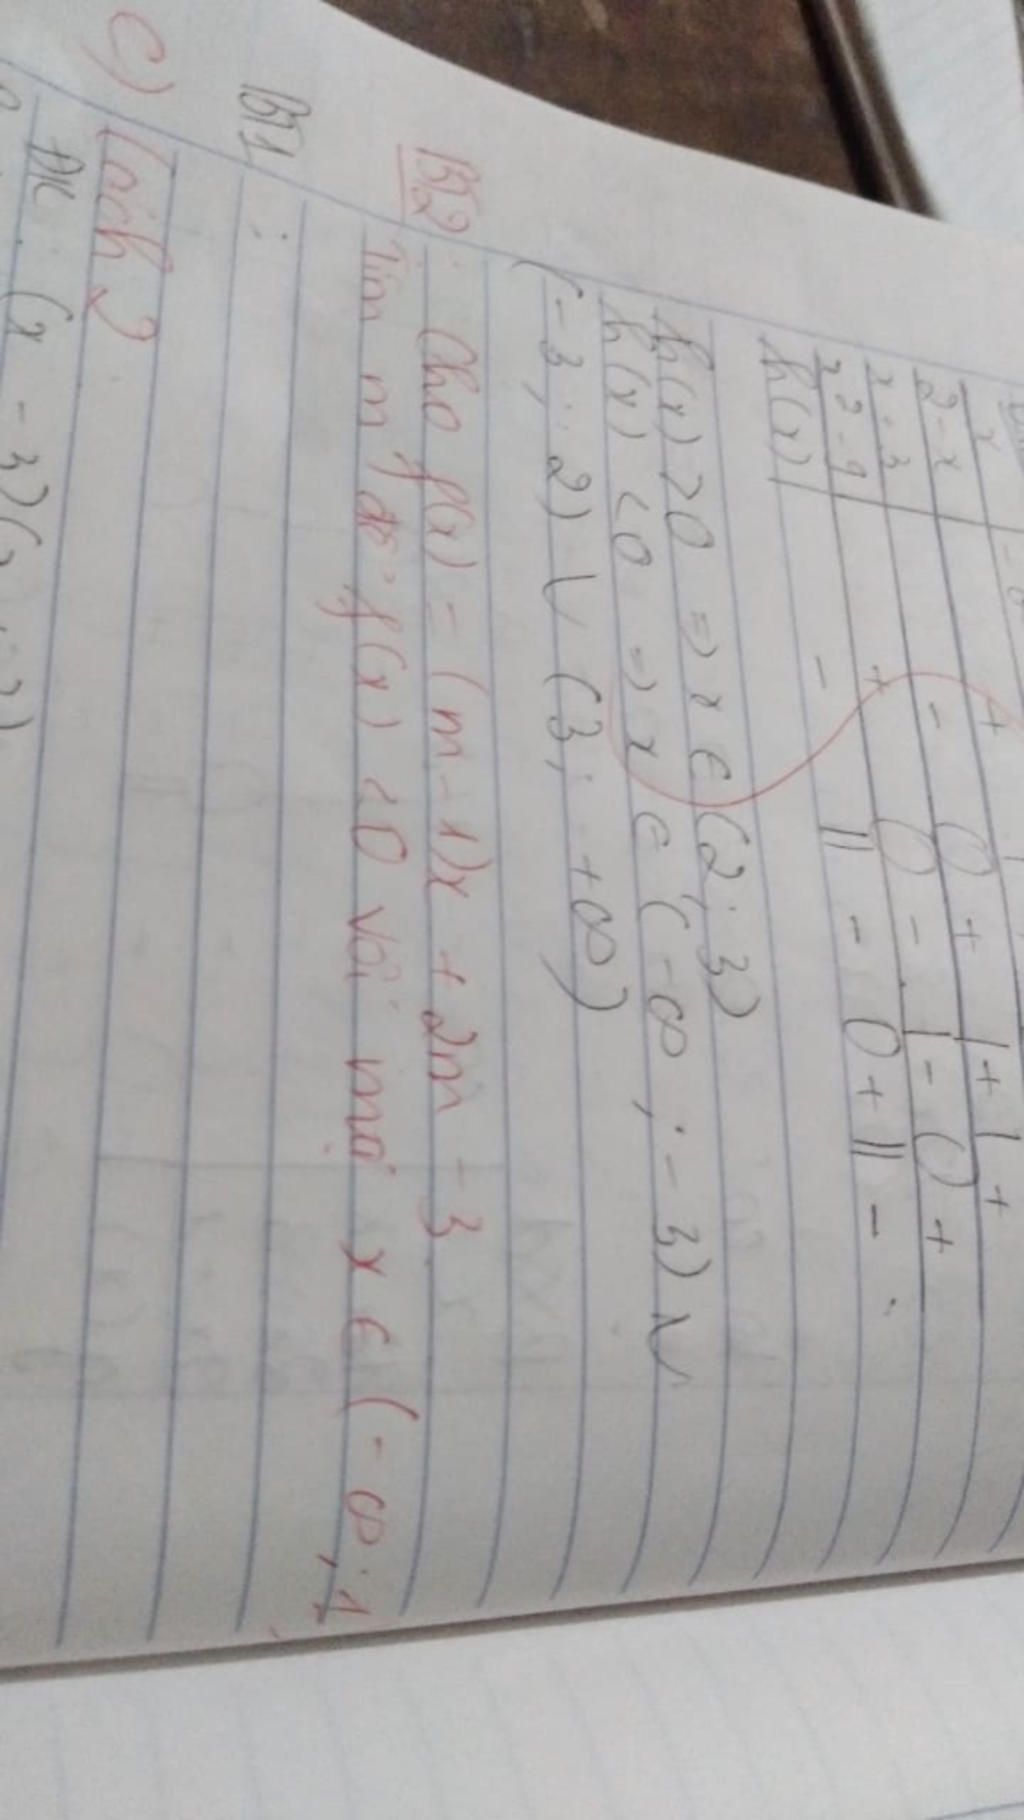 x
2-x + 0 + | + | +
x-3 - 0 - | - 0 +
x²-9 +
h(x) - || - 0 + || -
h(x) > 0 => x ∈ (2; 3)
h(x) < 0 => x ∈ (-∞; -3) ∪
(-3; 2) ∪ (3; +∞)
BT2: Cho f(x) = (m-1)x + 2m - 3
Tìm m để f(x) < 0 với mọi x ∈ (-∞; 1
BT1 :
c) Cách 2
ĐK: (x - 3)(